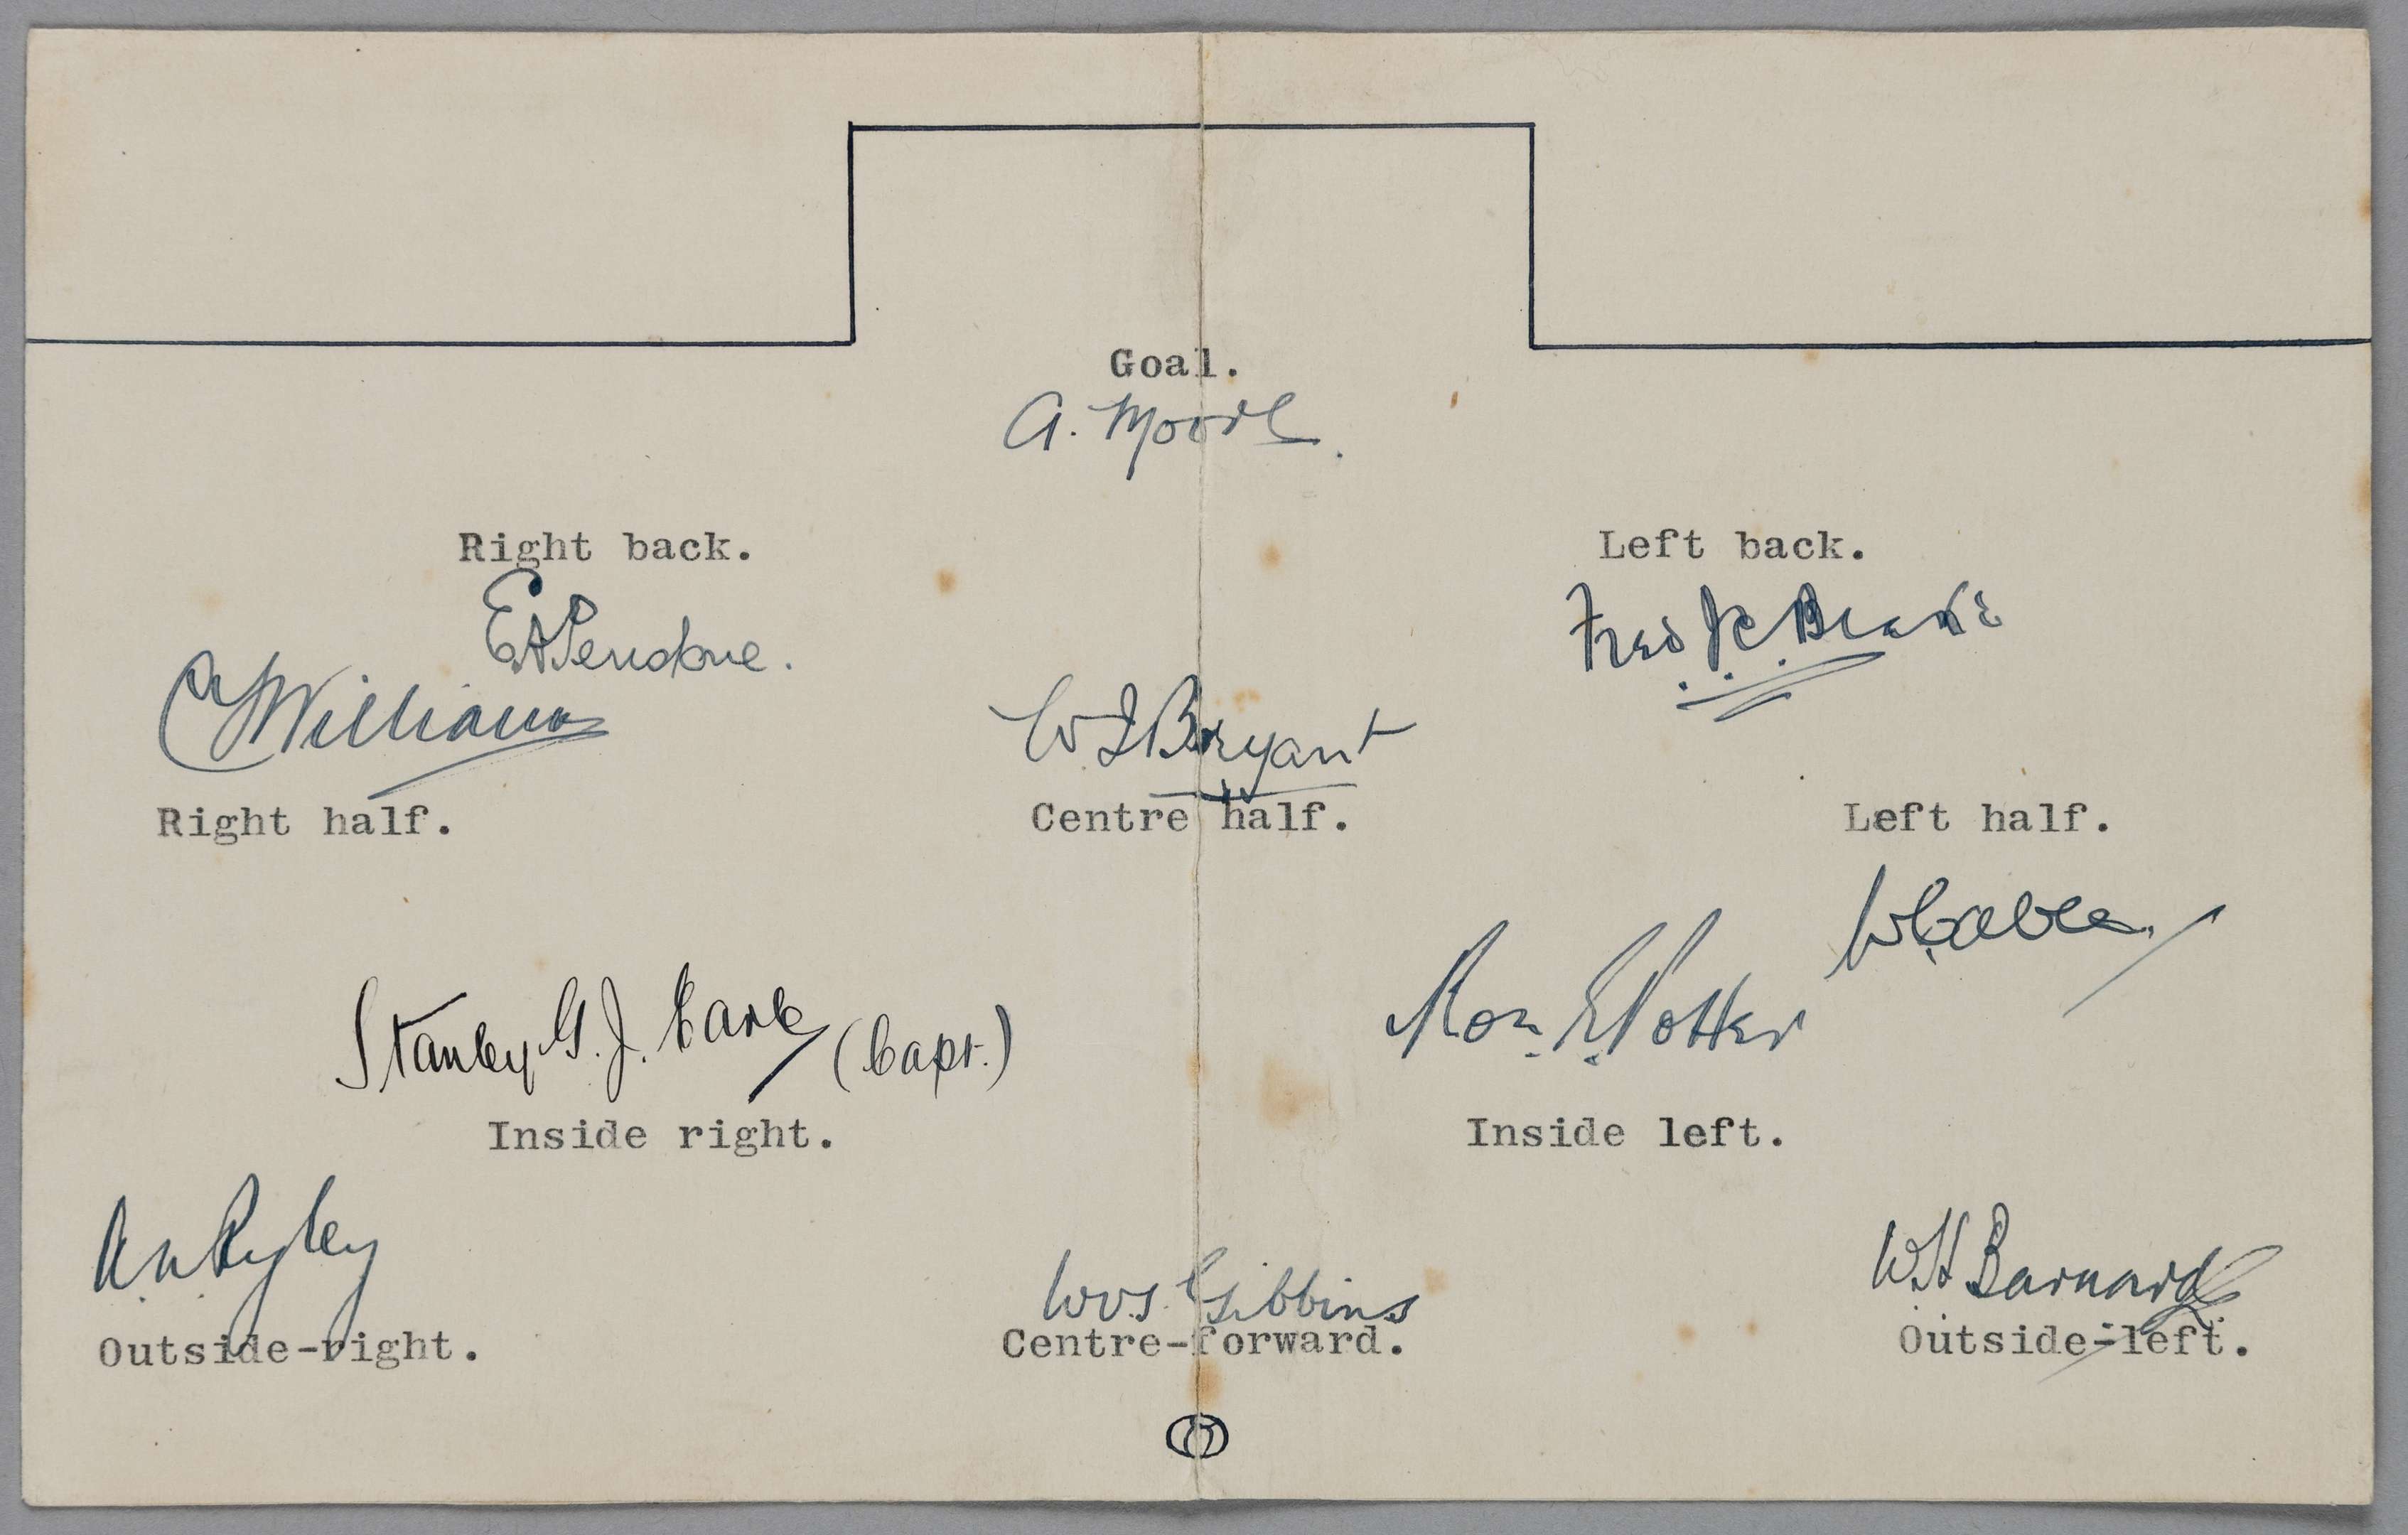 Goal.
A. Moore.
Right back.
Left back.
Fred
Williams
W I Bryant
Right half.
Centre half.
Left half.
Stanley G. J. Earle (Capt.)
Ron. E. Potter
Inside right.
Inside left.
Ryley
W.V.S. Gibbins
W H Barnard
Outside-right.
Centre-forward.
Outside-left.